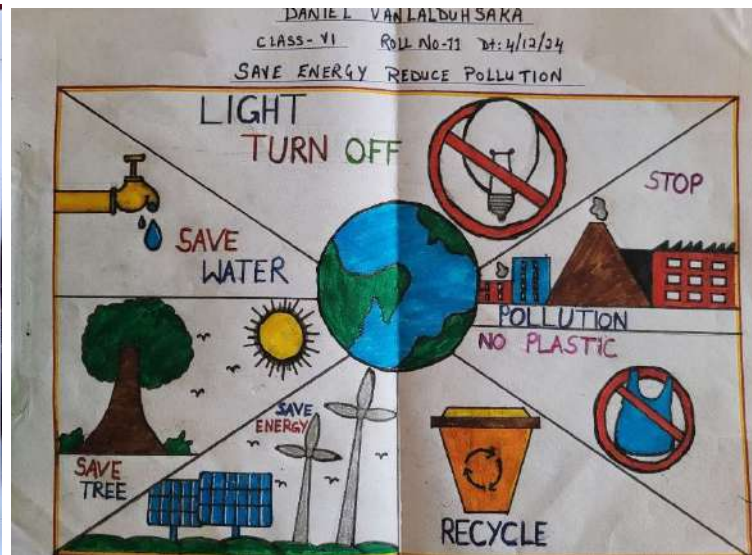 DANIEL VANLALDUHSAKA
CLASS-VI ROLL No-11 Dt: 4/12/24
SAVE ENERGY REDUCE POLLUTION
LIGHT
TURN OFF
STOP
SAVE
WATER
POLLUTION
NO PLASTIC
SAVE
ENERGY
SAVE
TREE
RECYCLE